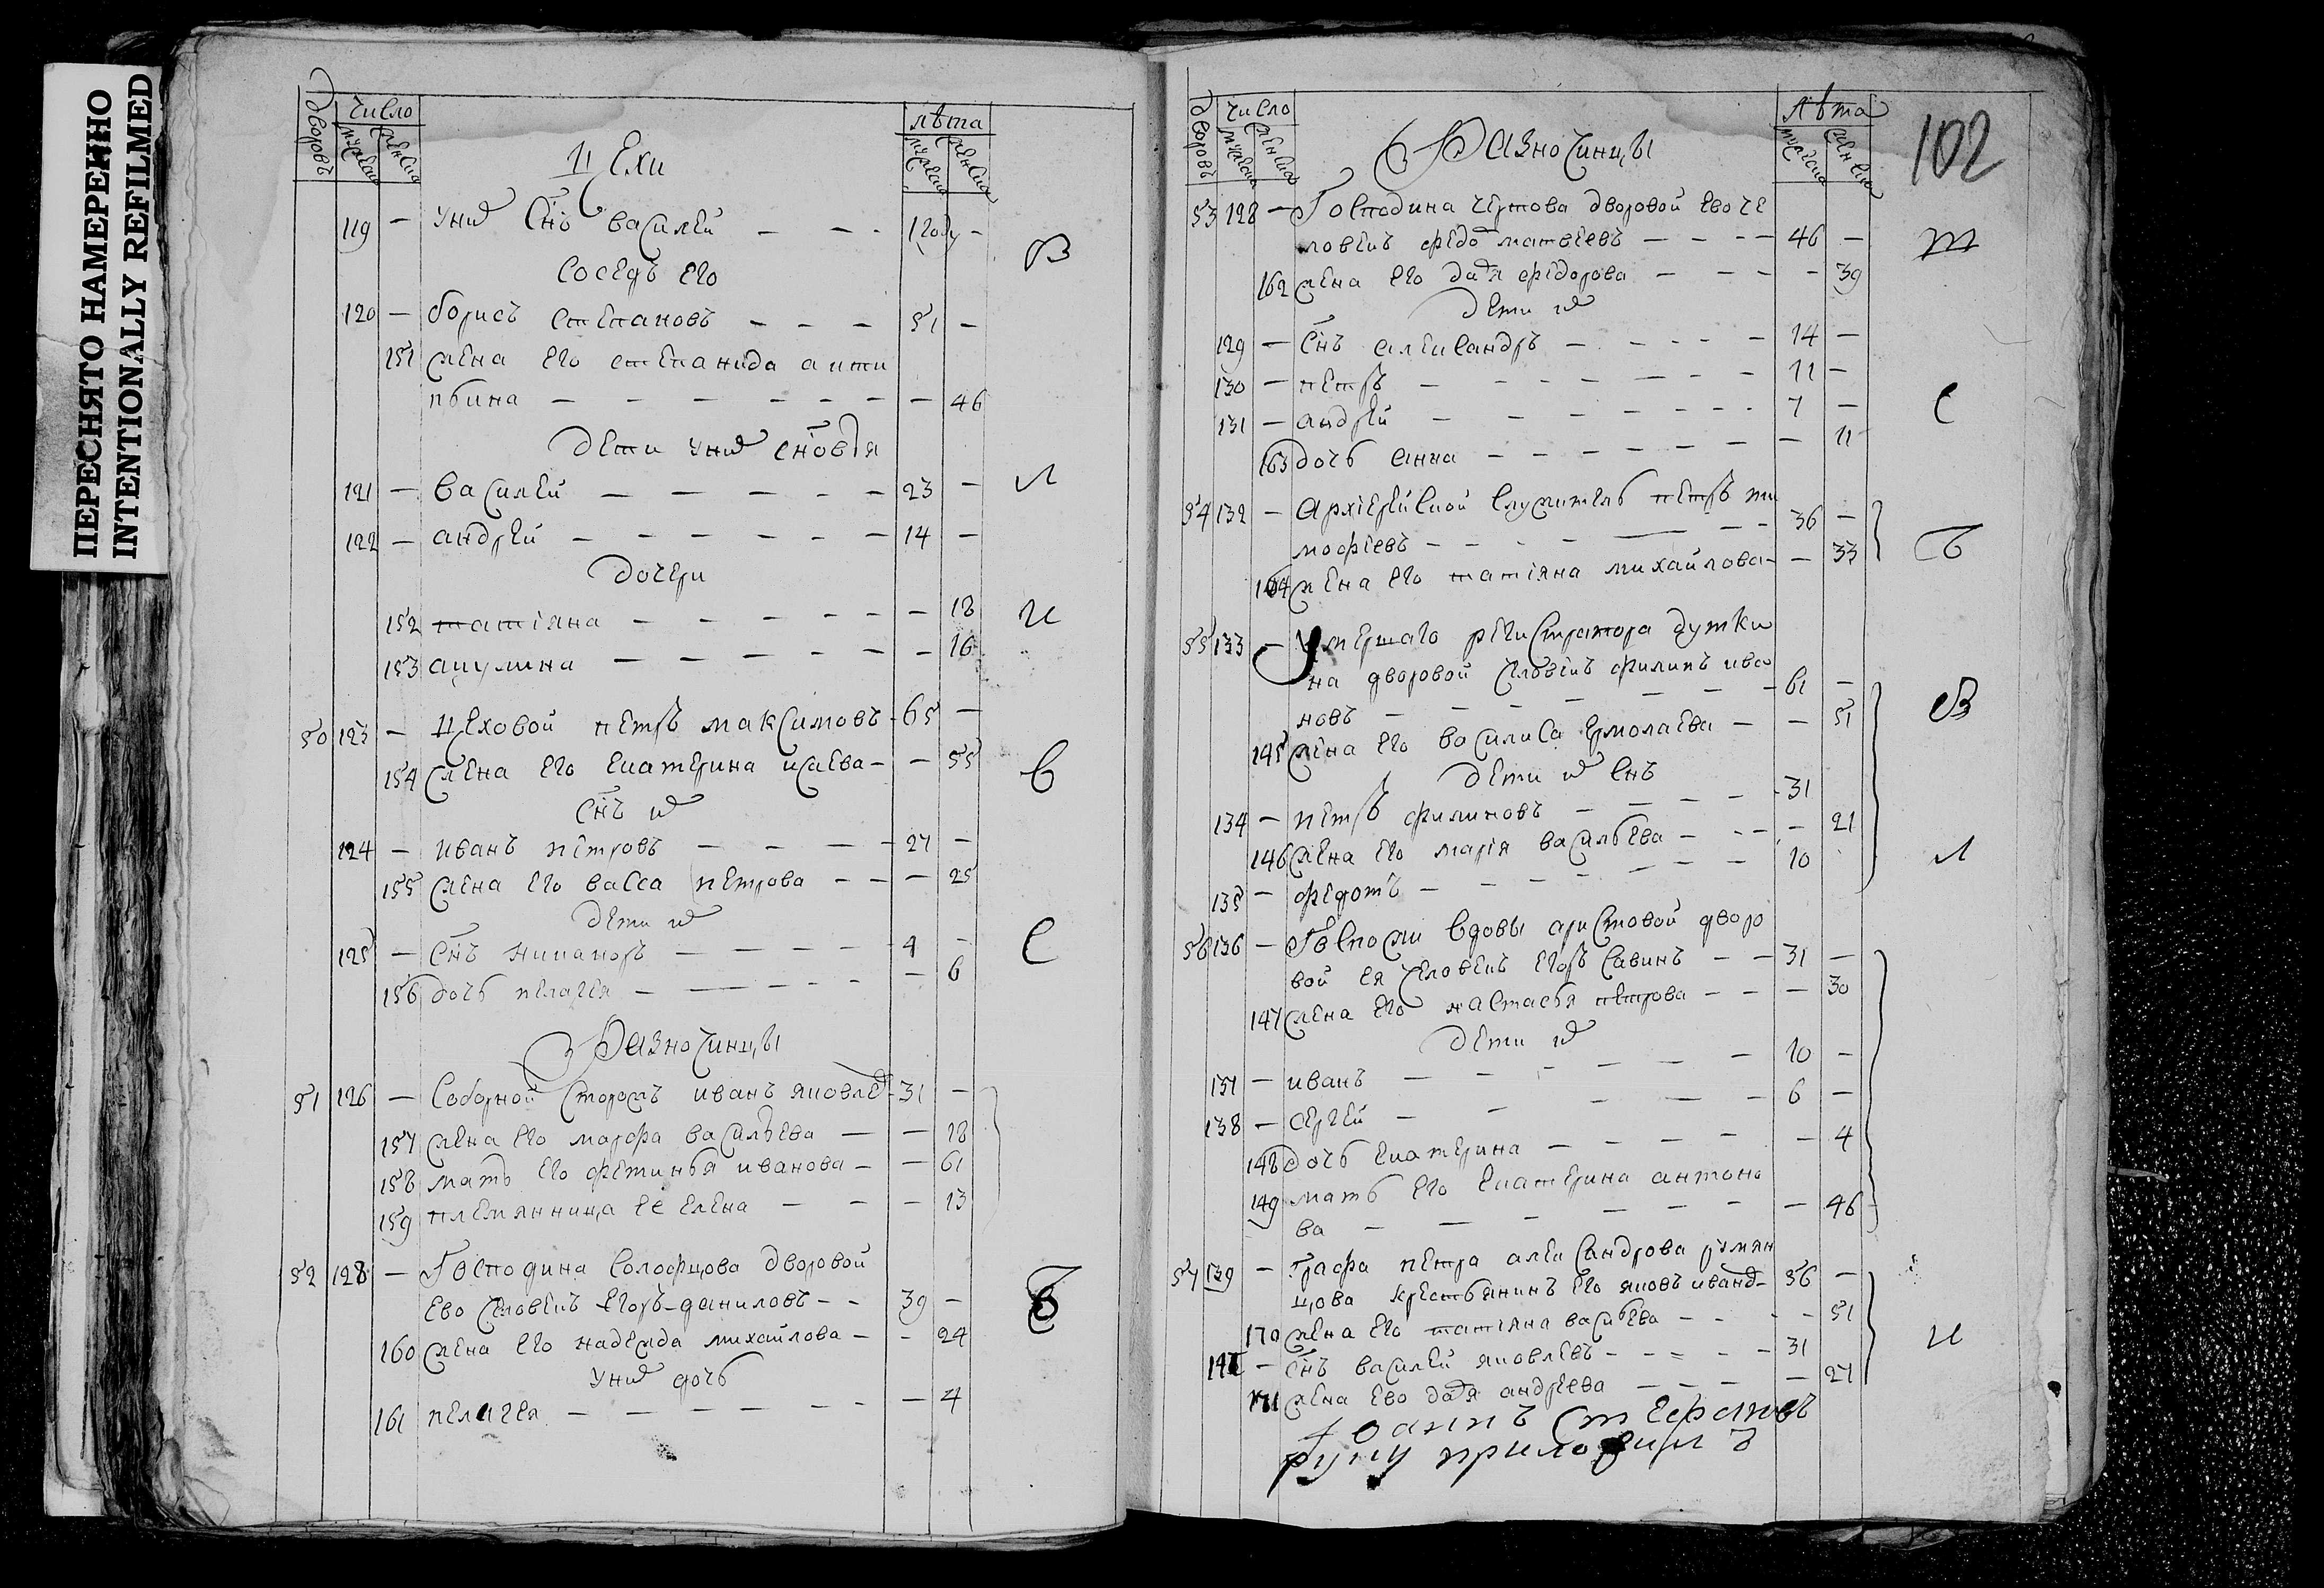 ПЕРЕСНЯТО НАМЕРЕННО
INTENTIONALLY REFILMED
дворовъ число мужеска женска Цехи лѣта мужеска женска
119 — У нихъ снъ василей — — — 1 году —
В
соседъ его
120 — борисъ степановъ — — — 51 —
151 жена его степанида анти
пьина — — — — — — — 46
дети у них сновiя
121 — василей — — — — — 23 —
л
122 — андрей — — — — — — 14 —
дочери
152 татiяна — — — — — — 18
и
153 акулина — — — — — — 16
50 123 — Цеховой петръ максимовъ - 65 —
154 жена его екатерина исаева — — 55
в
снъ их
124 — иванъ петровъ — — — — 27 —
155 жена его васса петрова — — — 25
дети их
125 — снъ никаноръ — — — — 4 —
С
156 дочь пелагея — — — — — — 6
Разночинцы
51 126 — Соборной сторожъ иванъ яковле - 31 —
157 жена его марфа васильева — — 18
158 мать его фетинья иванова — — 61
159 племянница ее елена — — — 13
52 128 — Господина солофцова дворовой
ево человекъ егоръ даниловъ — — 39 —
160 жена его надежда михайлова — - 24
у них дочь
161 пелагея — — — — — — — 4
дворовъ число мужеска женска Разночинцы лѣта мужеска женска
102
53 128 — Господина чертова дворовой ево че
ловекъ федо матвеевъ — — — — 46 —
т
162 жена его дадя федорова — — — - 39
дети их
129 — Снъ александръ — — — — — 14 —
130 — петръ — — — — — — — 11 —
131 — андрей — — — — — — — 7 —
С
163 дочь анна — — — — — — — 11
54 132 — Архiерейской служитель петръ ти
мофiевъ — — — — — — 36 —
164 жена его татiяна михайлова — — 33
55 133 — Умершаго регистратора дутки
на дворовой человекъ филипъ ива
новъ — — — — — — 61 —
145 жена его василиса ермолаева — — 51
В
дети их снъ
134 — петръ филиповъ — — — — 31
146 жена его марiя васильева — — — — 21
135 — федотъ — — — — — — — 10
л
56 136 — Госпожи вдовы аристовой дворо
вой ея человекъ егоръ савинъ — — 31 —
147 жена его настасья петрова — — — 30
дети их
137 — иванъ — — — — — — 10 —
138 — сергей — — — — — 6 —
148 дочь екатерина — — — — — 4
149 мать его екатерина антоно
ва — — — — — — — 46
57 139 — Графа петра александрова румян
цова крестьянинъ его яковъ ивано — 56 —
170 жена его татiяна васильева — — — 51
и
— снъ василей яковлевъ — — — — 31
171 жена ево дадя андреева — — — — 27
Iоаннъ Стефановъ
руку приложилъ